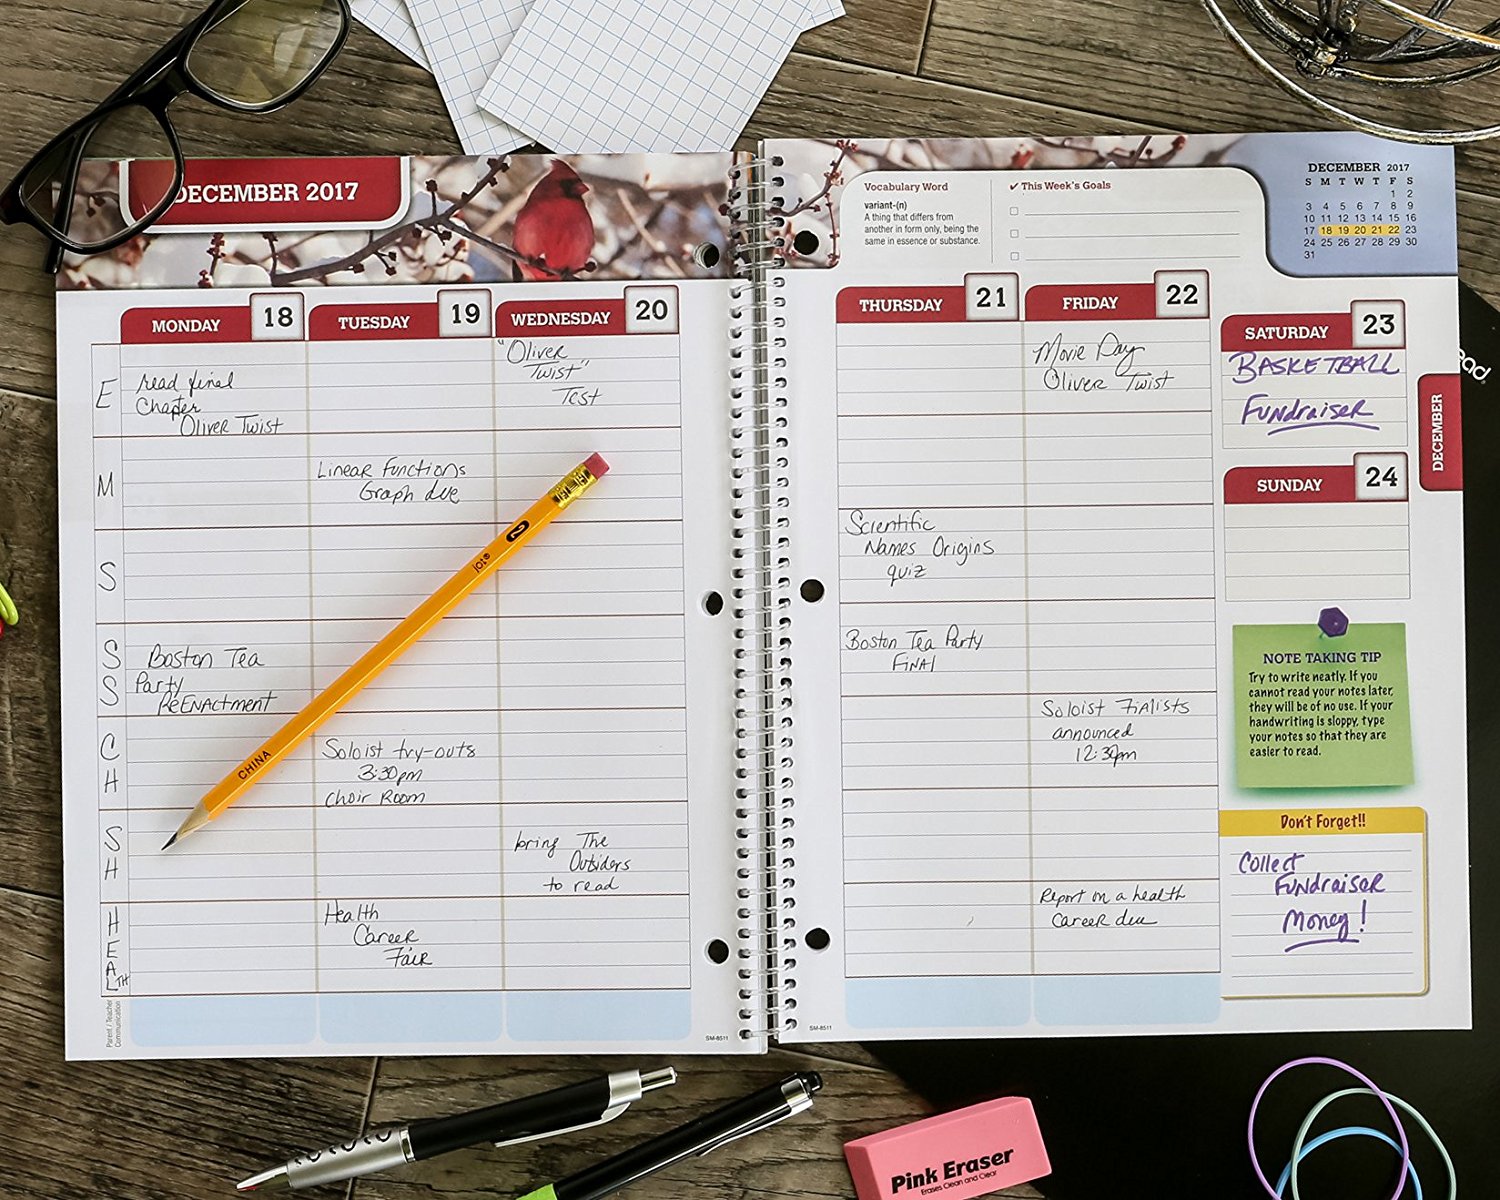 DECEMBER 2017
MONDAY 18
TUESDAY 19
WEDNESDAY 20
E
read final
Chapter
Oliver Twist
"Oliver
Twist"
Test
M
Linear Functions
Graph due
S
S
S
Boston Tea
Party
ReEnactment
C
H
Soloist try-outs
3:30pm
Choir Room
S
H
bring The
Outsiders
to read
H
E
A
L
TH
Health
Career
Fair
Parent / Teacher
Communication
SM-8511
2
jot®
CHINA
Vocabulary Word
variant-(n)
A thing that differs from
another in form only, being the
same in essence or substance.
✔ This Week's Goals
DECEMBER 2017
S M T W T F S
1 2
3 4 5 6 7 8 9
10 11 12 13 14 15 16
17 18 19 20 21 22 23
24 25 26 27 28 29 30
31
THURSDAY 21
FRIDAY 22
SATURDAY 23
Movie Day
Oliver Twist
BASKETBALL
Fundraiser
SUNDAY 24
DECEMBER
Scientific
Names Origins
quiz
Boston Tea Party
Final
Soloist Fialists
announced
12:30pm
Report on a health
Career due
NOTE TAKING TIP
Try to write neatly. If you
cannot read your notes later,
they will be of no use. If your
handwriting is sloppy, type
your notes so that they are
easier to read.
Don't Forget!!
Collect
Fundraiser
Money!
SM-8511
ead
Pink Eraser
Erases Clean and Clear